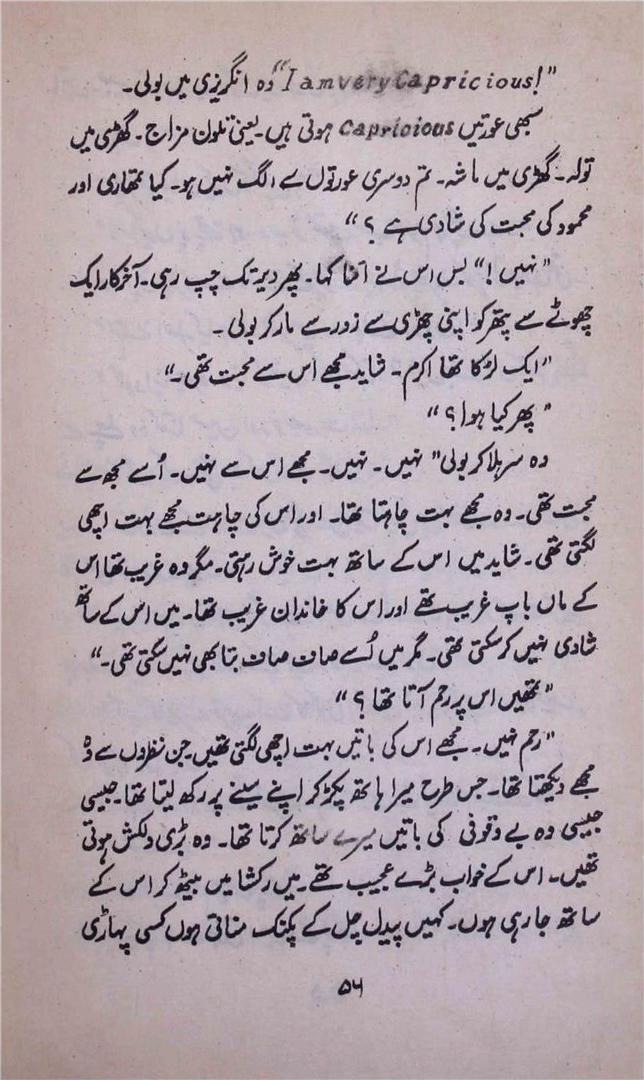 "I am very Capricious!" وہ انگریزی میں بولی۔
سبھی عورتیں Capricious ہوتی ہیں۔ یعنی تلون مزاج۔ گھڑی میں
تولہ۔ گھڑی میں ماشہ۔ تم دوسری عورتوں سے الگ نہیں ہو۔ کیا تمھاری اور
محمود کی محبت کی شادی ہے؟"
"نہیں!" بس اس نے اتنا کہا۔ پھر دیر تک چپ رہی۔ آخرکار ایک
چھوٹے سے پتھر کو اپنی چھڑی سے زور سے مار کر بولی۔
"ایک لڑکا تھا اکرم۔ شاید مجھے اس سے محبت تھی۔"
"پھر کیا ہوا؟"
وہ سر ہلا کر بولی" نہیں۔ نہیں۔ مجھے اس سے نہیں۔ اُسے مجھ سے
محبت تھی۔ وہ مجھے بہت چاہتا تھا۔ اور اس کی چاہت مجھے بہت اچھی
لگتی تھی۔ شاید میں اس کے ساتھ بہت خوش رہتی۔ مگر وہ غریب تھا اس
کے ماں باپ غریب تھے اور اس کا خاندان غریب تھا۔ میں اس کے ساتھ
شادی نہیں کر سکتی تھی۔ مگر میں اُسے صاف صاف بتا بھی نہیں سکتی تھی۔"
"تمھیں اس پر رحم آتا تھا؟"
"رحم نہیں۔ مجھے اس کی باتیں بہت اچھی لگتی تھیں جن نظروں سے وہ
مجھے دیکھتا تھا۔ جس طرح میرا ہاتھ پکڑ کر اپنے سینے پر رکھ لیتا تھا۔ جیسی
جیسی وہ بے وقوفی کی باتیں میرے ساتھ کرتا تھا۔ وہ بڑی دلکش ہوتی
تھیں۔ اس کے خواب بڑے عجیب تھے۔ میں رکشا میں بیٹھ کر اس کے
ساتھ جا رہی ہوں۔ کہیں پیدل چل کے پکنک مناتی ہوں کسی پہاڑی
۵۶